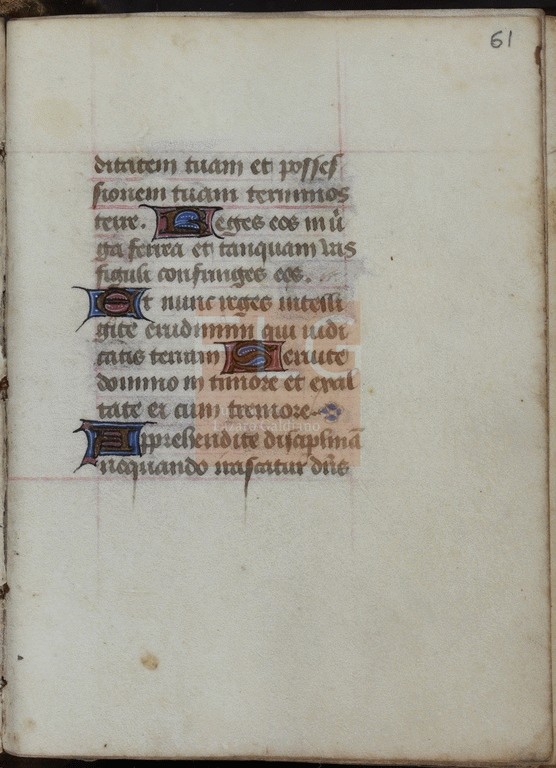 61
ditatem tuam et posses
sionem tuam terminos
terre. Reges eos in ũ
ga ferrea et tanquam vas
figuli confringes eos.
Et nunc reges intelli
gite erudimini qui iudi
catis terram Seruite
domino in timore et exul
tate ei cum tremore
Apprehendite disciplinã
nequando irascatur dñs
Lázaro Galdiano